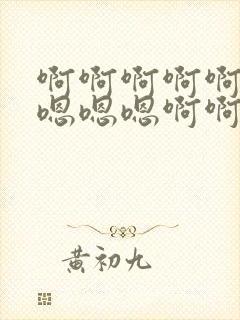 啊啊啊啊啊
嗯嗯嗯啊啊
黄初九